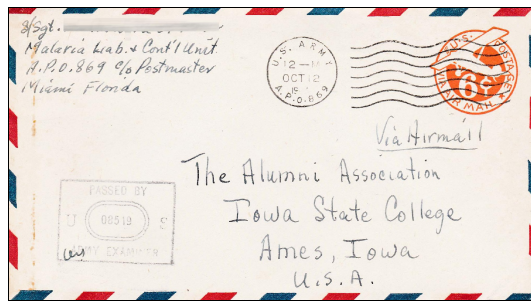 S/Sgt.
Malaria Lab. & Cont'l Unit
A.P.O. 869 c/o Postmaster
Miami Florida
U.S. ARMY
12—M
OCT 12
19
A.P.O. 869
U.S. POSTAGE
6¢
VIA AIR MAIL
Via Airmail
The Alumni Association
Iowa State College
Ames, Iowa
U.S.A.
PASSED BY
U 08519 S
ARMY EXAMINER